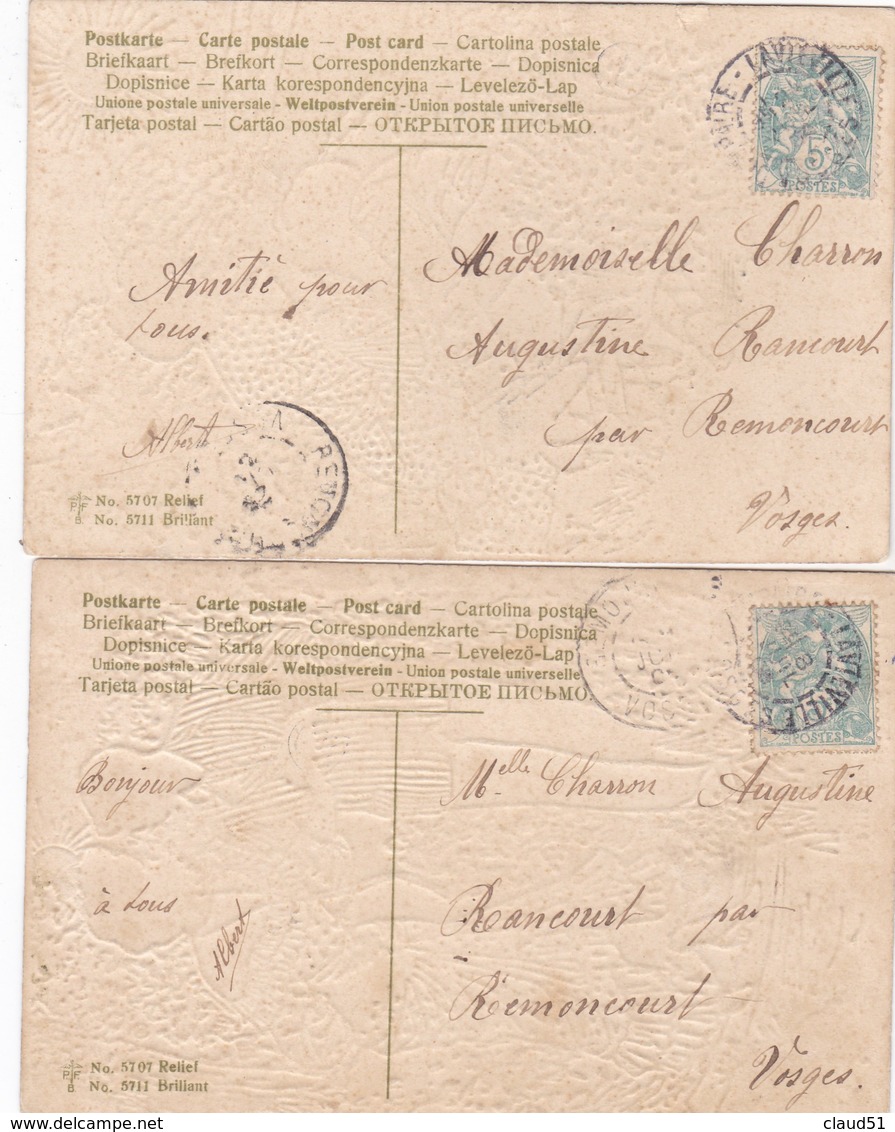 Postkarte — Carte postale — Post card — Cartolina postale
Briefkaart — Brefkort — Correspondenzkarte — Dopisnica
Dopisnice — Karta korespondencyjna — Levelező-Lap
Unione postale universale - Weltpostverein - Union postale universelle
Tarjeta postal — Cartão postal — ОТКРЫТОЕ ПИСЬМО.
5
POSTES
Mademoiselle Charron
Augustine Rancourt
par Remoncourt
Vosges.
Amitié pour
tous.
Albert
P F B.
No. 5707 Relief
No. 5711 Brillant
Postkarte — Carte postale — Post card — Cartolina postale
Briefkaart — Brefkort — Correspondenzkarte — Dopisnica
Dopisnice — Karta korespondencyjna — Levelező-Lap
Unione postale universale - Weltpostverein - Union postale universelle
Tarjeta postal — Cartão postal — ОТКРЫТОЕ ПИСЬМО.
POSTES
Bonjour
à tous
Albert
Melle Charron Augustine
Rancourt par
Remoncourt
Vosges.
P F B.
No. 5707 Relief
No. 5711 Brillant
delcampe.net
claud51